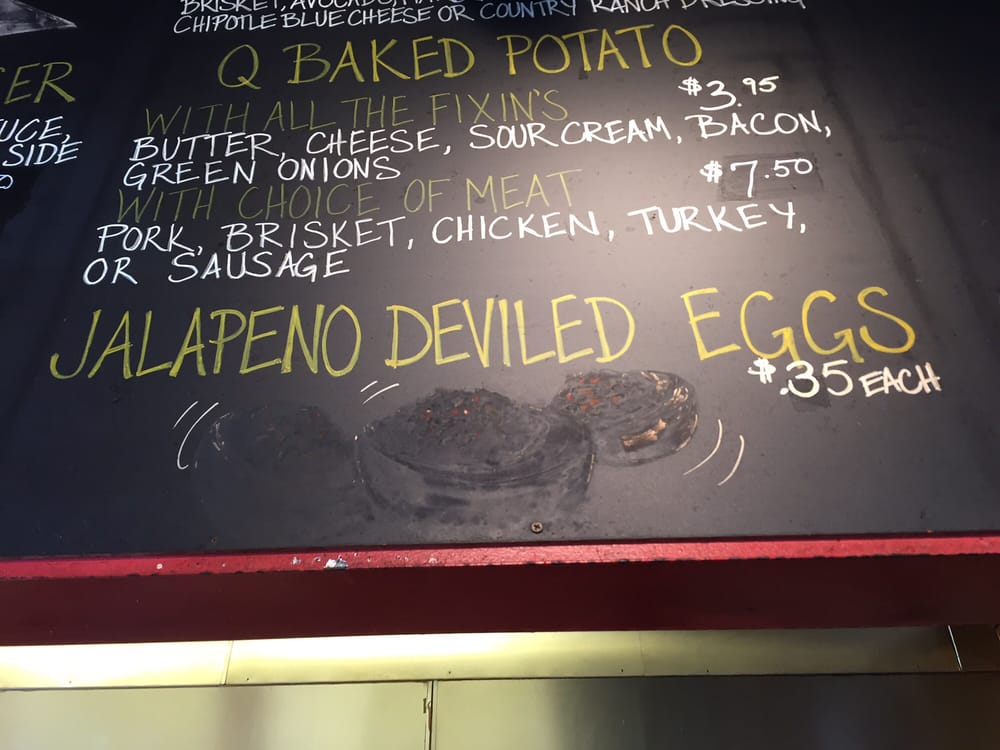 BRISKET, AVOCADO,
CHIPOTLE BLUE CHEESE OR COUNTRY RANCH DRESSING
ER
UCE,
SIDE
Q BAKED POTATO
WITH ALL THE FIXIN'S $3.95
BUTTER, CHEESE, SOUR CREAM, BACON,
GREEN ONIONS
WITH CHOICE OF MEAT $7.50
PORK, BRISKET, CHICKEN, TURKEY,
OR SAUSAGE
JALAPENO DEVILED EGGS
$.35 EACH